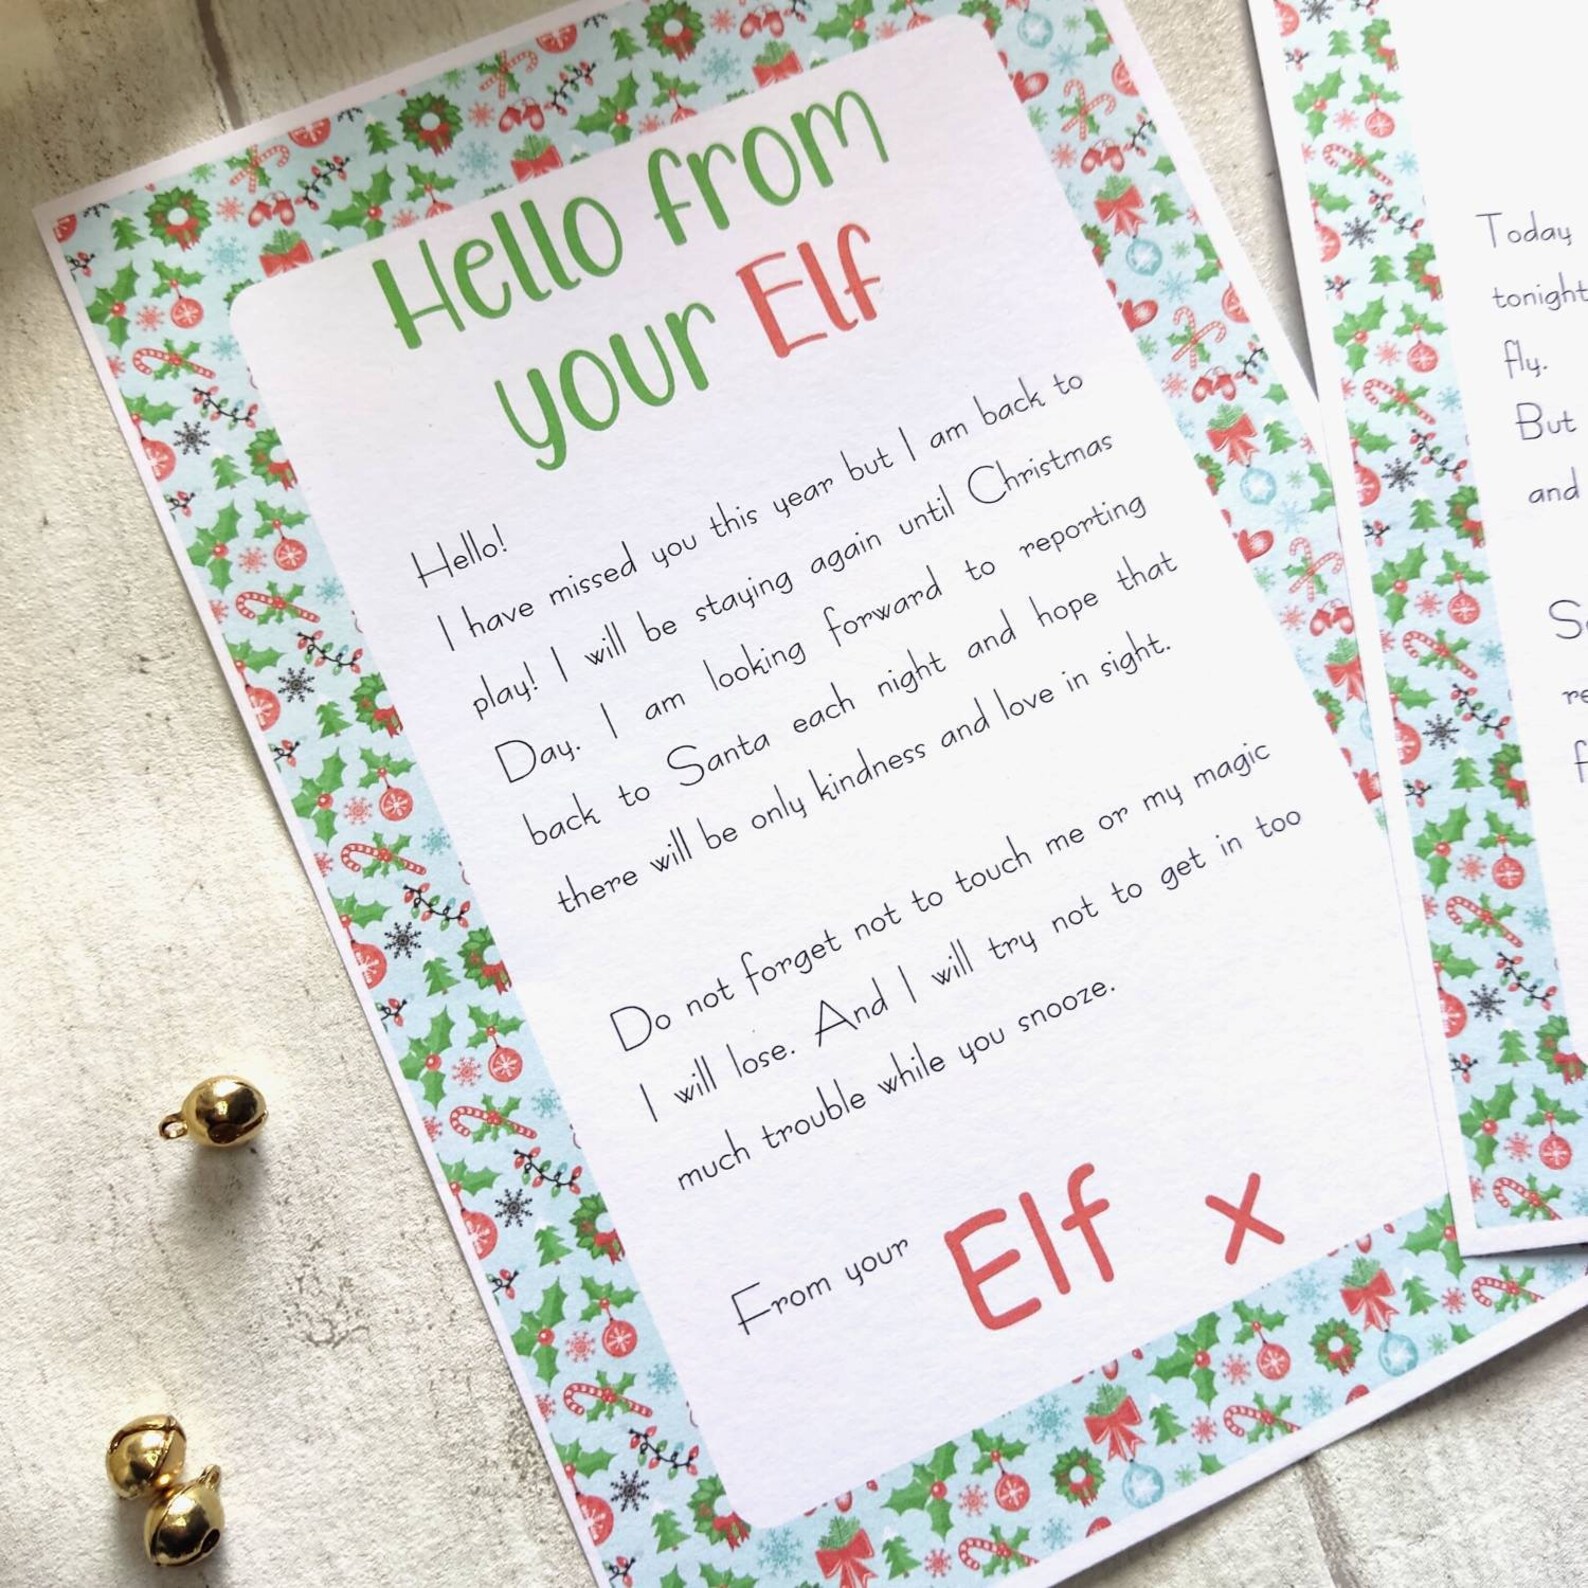 Hello from
your Elf
Hello!
I have missed you this year but I am back to
play! I will be staying again until Christmas
Day. I am looking forward to reporting
back to Santa each night and hope that
there will be only kindness and love in sight.
Do not forget not to touch me or my magic
I will lose. And I will try not to get in too
much trouble while you snooze.
From your Elf x
Today
tonight
fly.
But
and